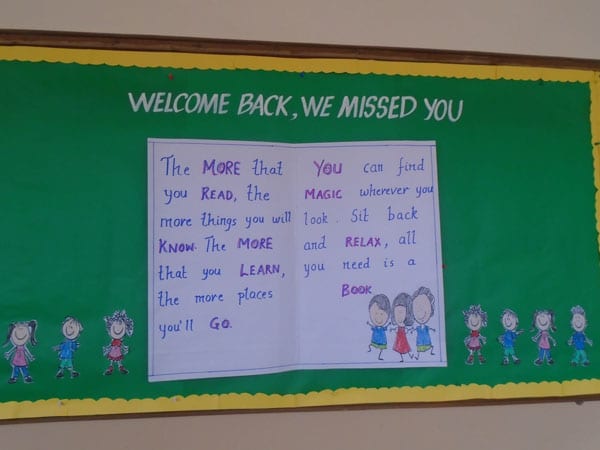 WELCOME BACK, WE MISSED YOU
The MORE that
you READ, the
more things you will
KNOW. The MORE
that you LEARN,
the more places
you'll GO.
YOU can find
MAGIC wherever you
look. Sit back
and RELAX, all
you need is a
BOOK